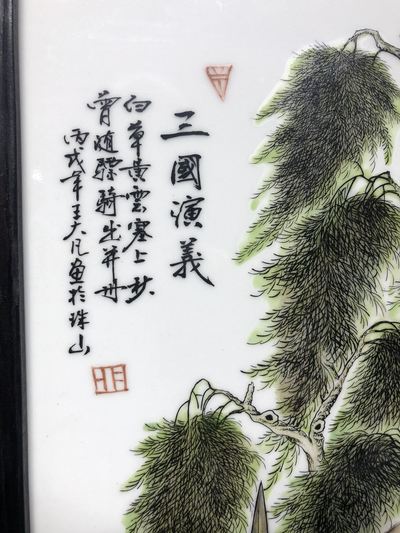 三國演義
白草黄雲塞上秋
曾随驃騎出并州
丙戌年王大凡畫於珠山